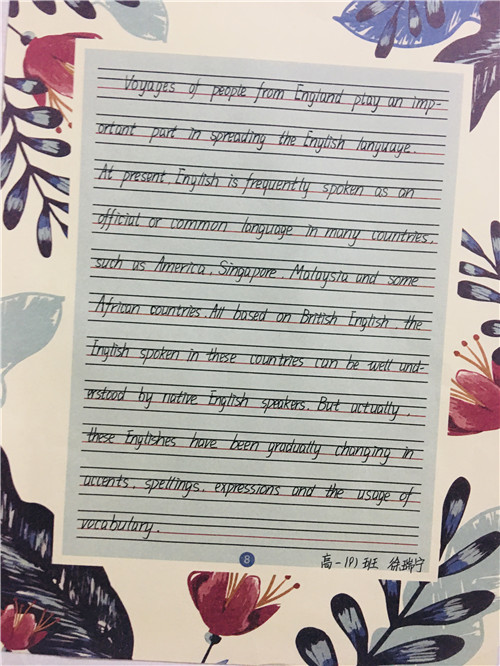 Voyages of people from England play an imp-
ortant part in spreading the English language.
At present, English is frequently spoken as an
official or common language in many countries,
such as America, Singapore, Malaysia and some
African countries. All based on British English, the
English spoken in these countries can be well und-
erstood by native English speakers. But actually,
these Englishes have been gradually changing in
accents, spellings, expressions and the usage of
vocabulary.
8
高一(9)班 徐瑞宁